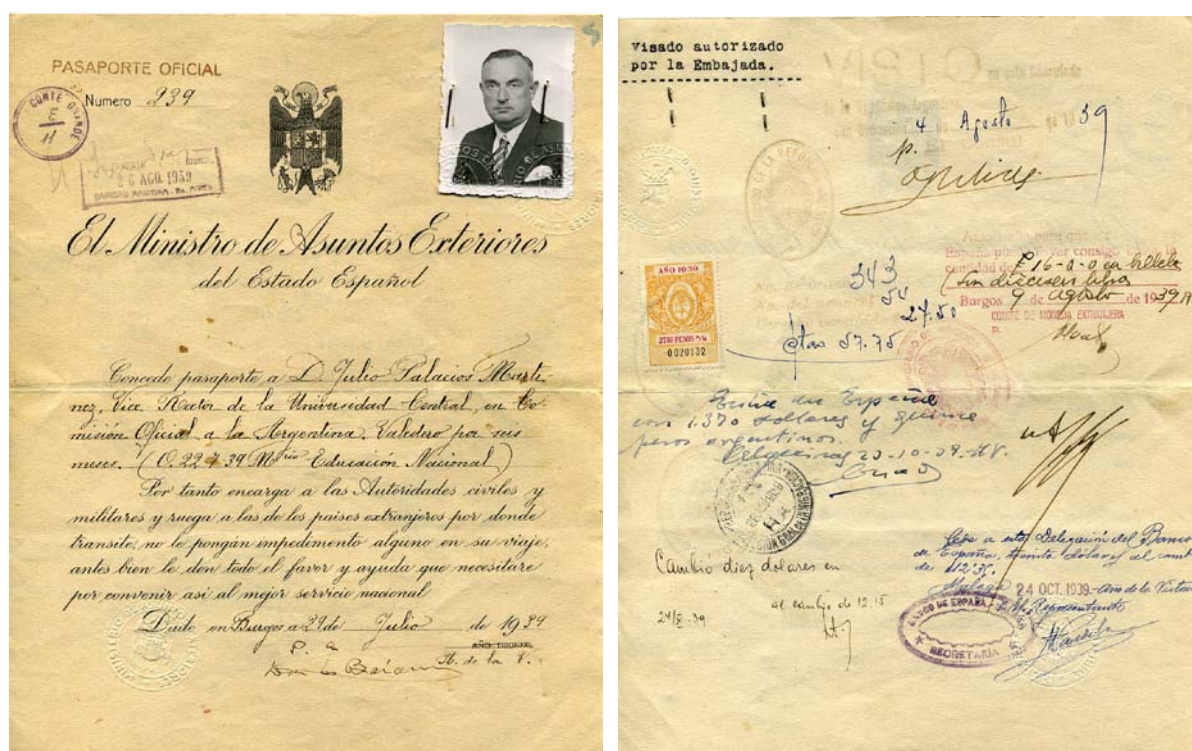 PASAPORTE OFICIAL
Numero 239
CONTE GRANDE
26 AGO. 1939
SANIDAD MARITIMA - Bs. AIRES
El Ministro de Asuntos Exteriores
del Estado Español
Concede pasaporte a D. Julio Palacios Marti-
nez, Vice Rector de la Universidad Central, en Co-
misión Oficial a la Argentina. Valedero por seis
meses. (O. 22-7-39 Mº rio Educación Nacional)
Por tanto encarga a las Autoridades civiles y
militares y ruega a las de los paises extranjeros por donde
transite, no le pongan impedimento alguno en su viaje,
antes bien le den todo el favor y ayuda que necesitare
por convenir asi al mejor servicio nacional
Dado en Burgos a 29 de Julio de 1939
AÑO TRIUNFAL
A. de la V.
Visado autorizado
por la Embajada.
4 Agosto 39
p.
España
cantidad de £ 16-0-0 en billetes
(son dieciseis libras
Burgos 9 de agosto de 1939
COMITÉ DE MONEDA EXTRANJERA
P.
AÑO 1939
0020132
343
54
27.50
ptas 57.75
Entra en España
con 1.370 dollares y quince
pesos argentinos.
Algeciras 23-10-39-
Cambió diez dolares en
al cambio de 12.15
24/X-39
Cede a esta Delegación del Banco
de España, treinta dólares al cambio
de
Malaga 24 OCT. 1939 - Año de la Victoria
Representante
BANCO DE ESPAÑA
SECRETARIA